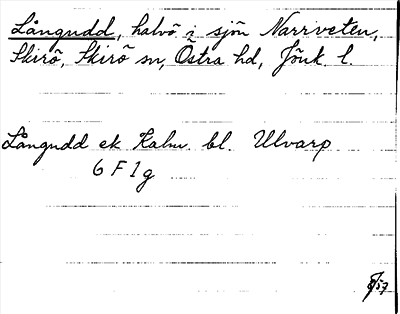 Långudd, halvö i sjön Narrveten,
Skirö, Skirö sn, Östra hd, Jönk. l.
Långudd ek Kalm. bl. Ulvarp
6 F 1 g